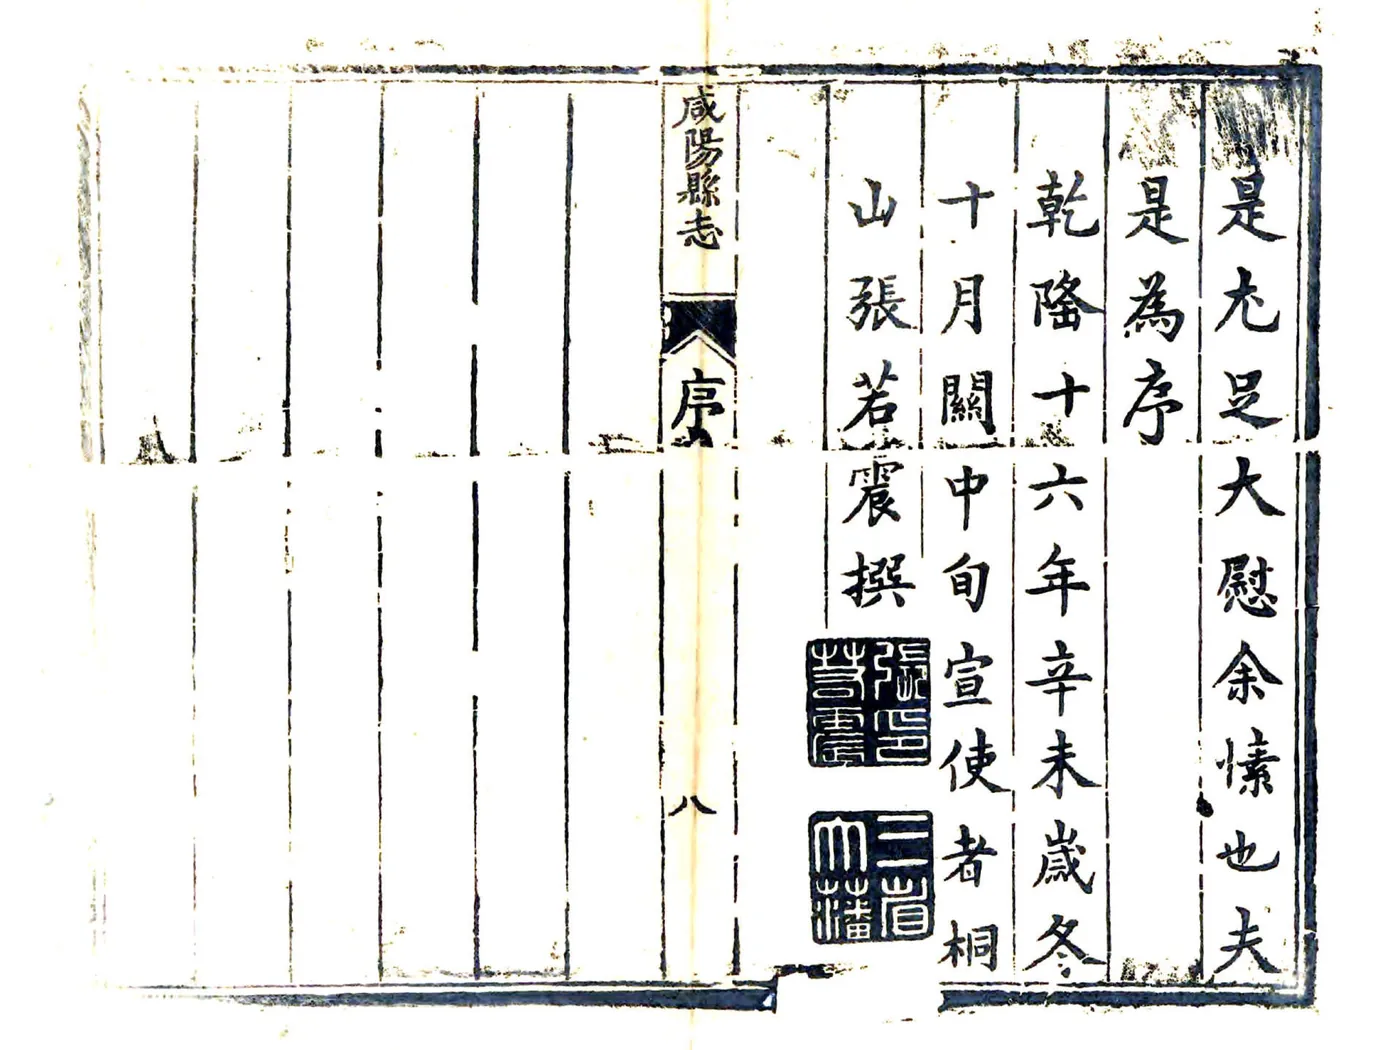 是尤足大慰余愫也夫
是為序
乾隆十六年辛未歲冬
十月關中旬宣使者桐
山張若震撰
張印
若震
二省
大藩
咸陽縣志
序
八